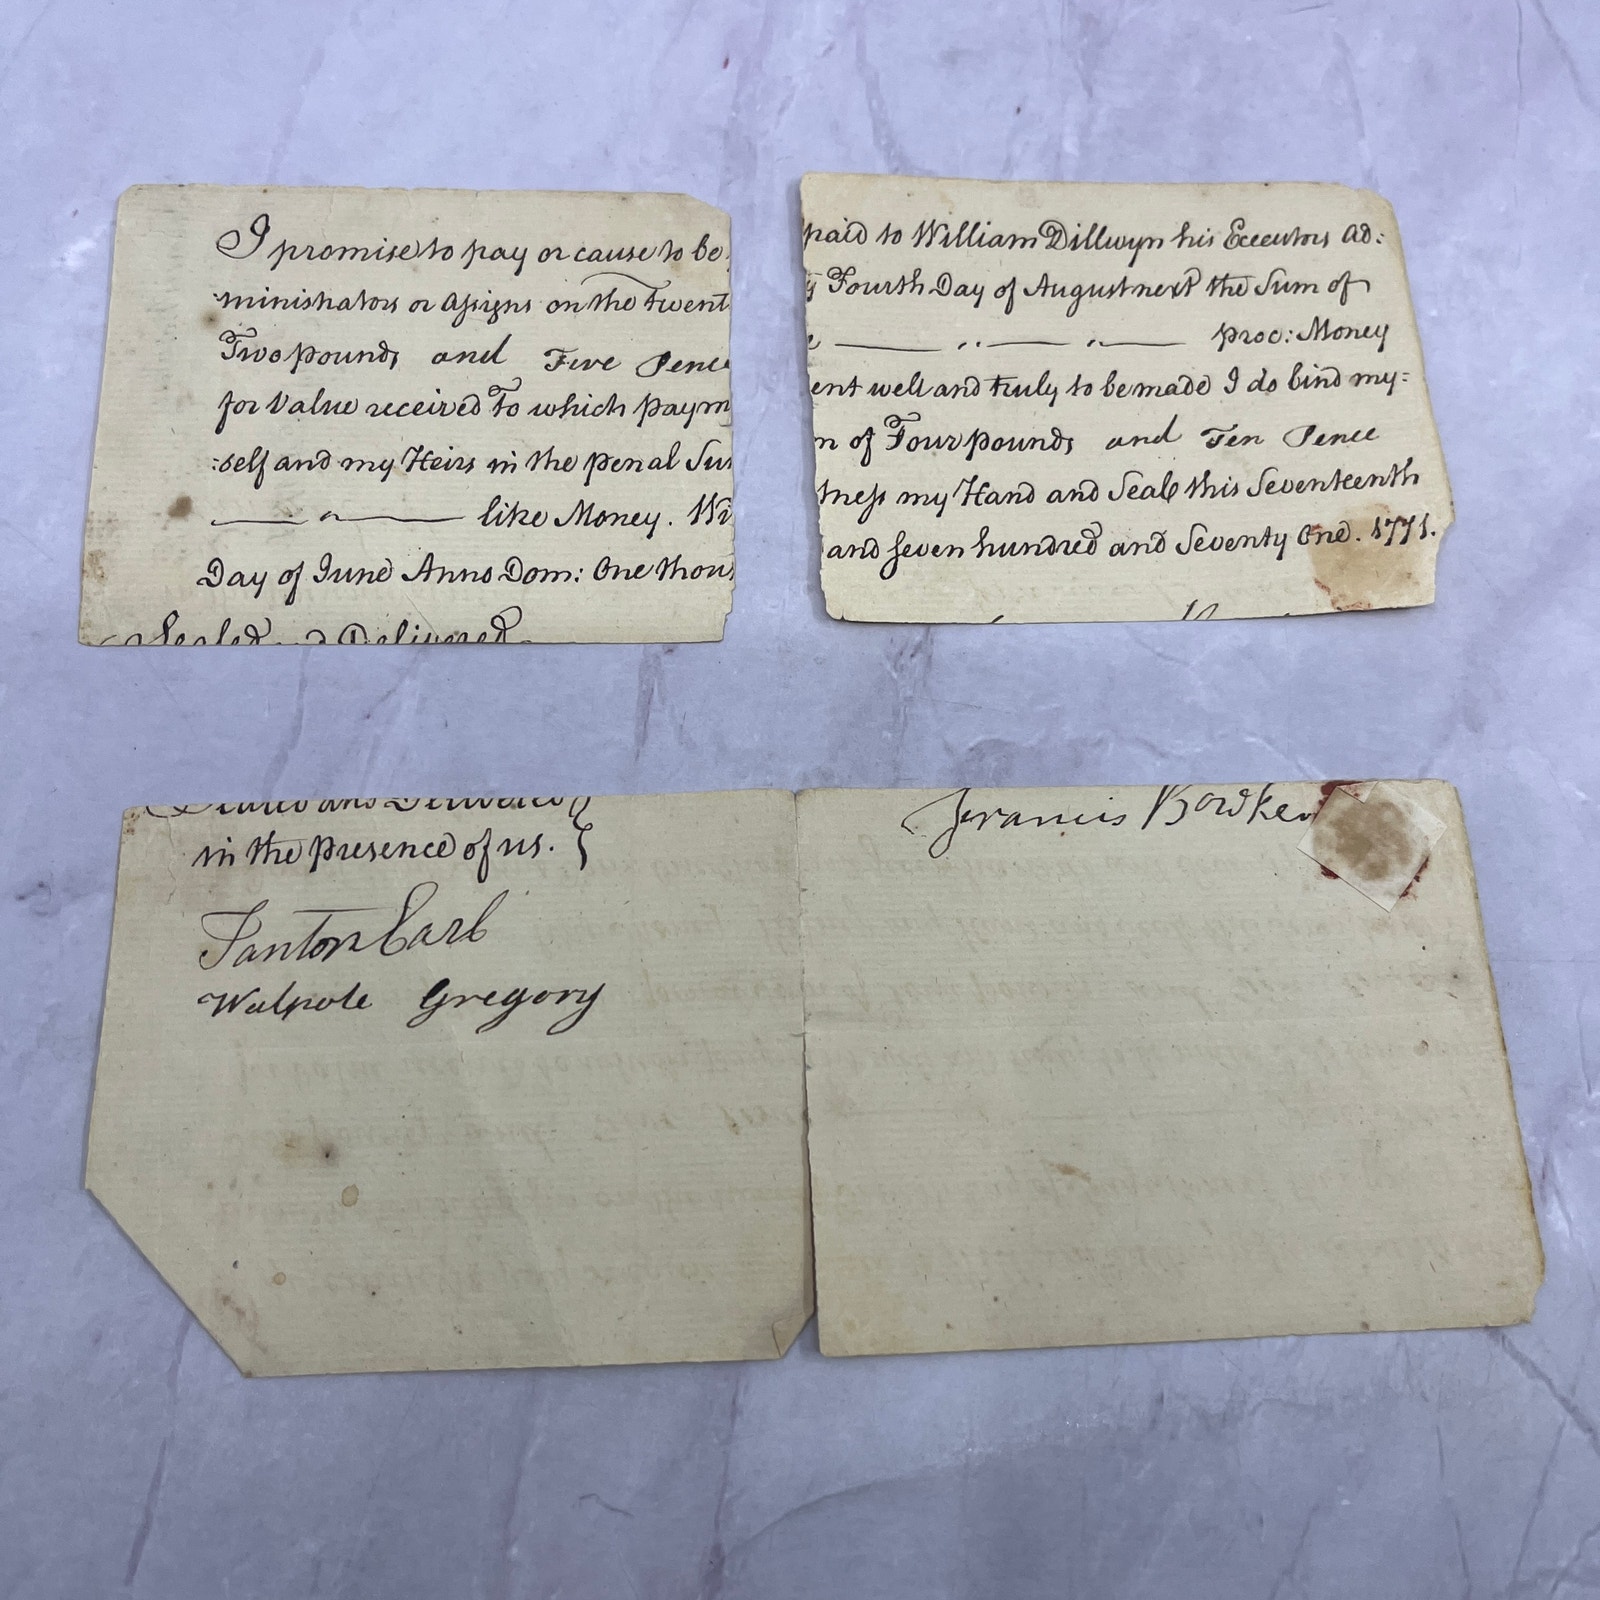 I promise to pay or cause to be
ministrators or Assigns on the Twent
Two pounds and Five Pence
for Value received To which paym
:self and my Heirs in the penal Sum
like Money. Wi
Day of June Anno Dom: One thous
Sealed and Delivered
paid to William Dillwyn his Executors Ad:
y Fourth Day of August next the Sum of
proc: Money
ent well and truly to be made I do bind my:
m of Four pounds and Ten Pence
tness my Hand and Seal this Seventeenth
and seven hundred and Seventy One. 1771.
Sealed and Delivered
in the presence of us.
Tanton Earl
Walpole Gregory
Francis Bowker